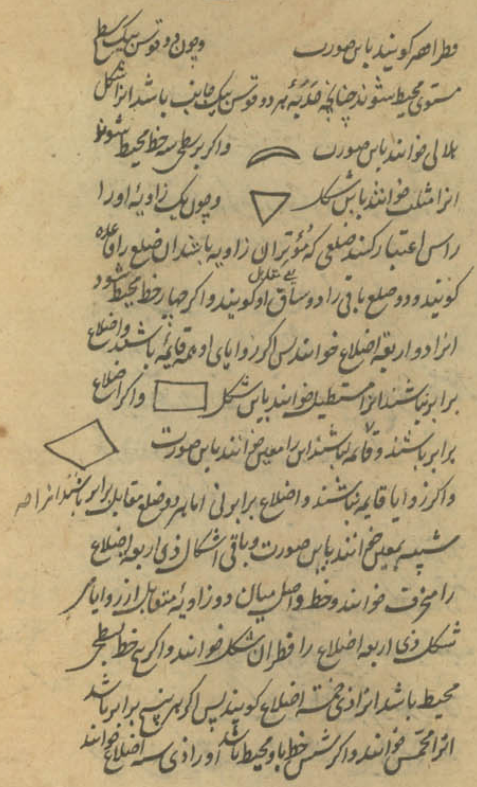 قطاع اصغر گویند باین صورت و چون دو قوس بیک سطح
مستوی محیط شوند چنانچه حدبهٔ هر دو قوس بیک جانب باشد انرا شکل
هلالی خوانند باین صورت و اگر بر سطحی سه خط محیط شوند
انرا مثلث خوانند باین شکل و چون یک زاویهٔ اورا
راس اعتبار کنند ضلعی که موتر ان زاویه باشد ان ضلع را قاعده
گویند و دو ضلع باقی را دو ساق او گویند و اگر چهار خط محیط شود
انرا ذو اربعه اضلاع خوانند پس اگر زوایای او همه قایمه باشند و اضلاع
برابر نباشند انرا مستطیل خوانند باین شکل و اگر اضلاع
برابر باشند و قایمه نباشند این را معین خوانند باین صورت
و اگر زوایا قایمه نباشند و اضلاع برابر نی اما هر دو ضلع مقابل برابر باشند انرا
شبیه بمعین خوانند باین صورت و باقی اشکال ذی اربعه اضلاع
را منحرف خوانند و خط واصل میان دو زاویهٔ متقابل از زوایای
شکل ذی اربعه اضلاع را قطر ان شکل خوانند و اگر پنج خط بسطحی
محیط باشد انرا ذی خمسه اضلاع گویند پس اگر هر پنج برابر باشد
انرا مخمس خوانند و اگر شش خط باو محیط باشد اورا ذی سته اضلاع خوانند